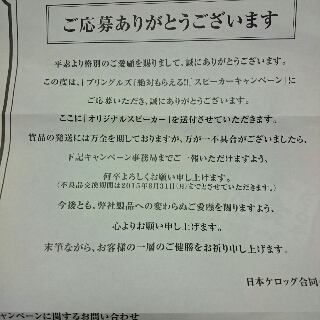 ご応募ありがとうございます
平素より格別のご愛顧を賜りまして、誠にありがとうございます。
この度は、「プリングルズ『絶対もらえる!!』スピーカーキャンペーン」に
ご応募いただき、誠にありがとうございます。
ここに「オリジナルスピーカー」を送付させていただきます。
賞品の発送には万全を期しておりますが、万が一不具合がございましたら、
下記キャンペーン事務局までご一報いただけますよう、
何卒よろしくお願い申し上げます。
(不良品交換期間は2015年8月31日(月)までとさせていただきます。)
今後とも、弊社製品への変わらぬご愛顧を賜りますよう、
心よりお願い申し上げます。
末筆ながら、お客様の一層のご健勝をお祈り申し上げます。
日本ケロッグ合同
キャンペーンに関するお問い合わせ